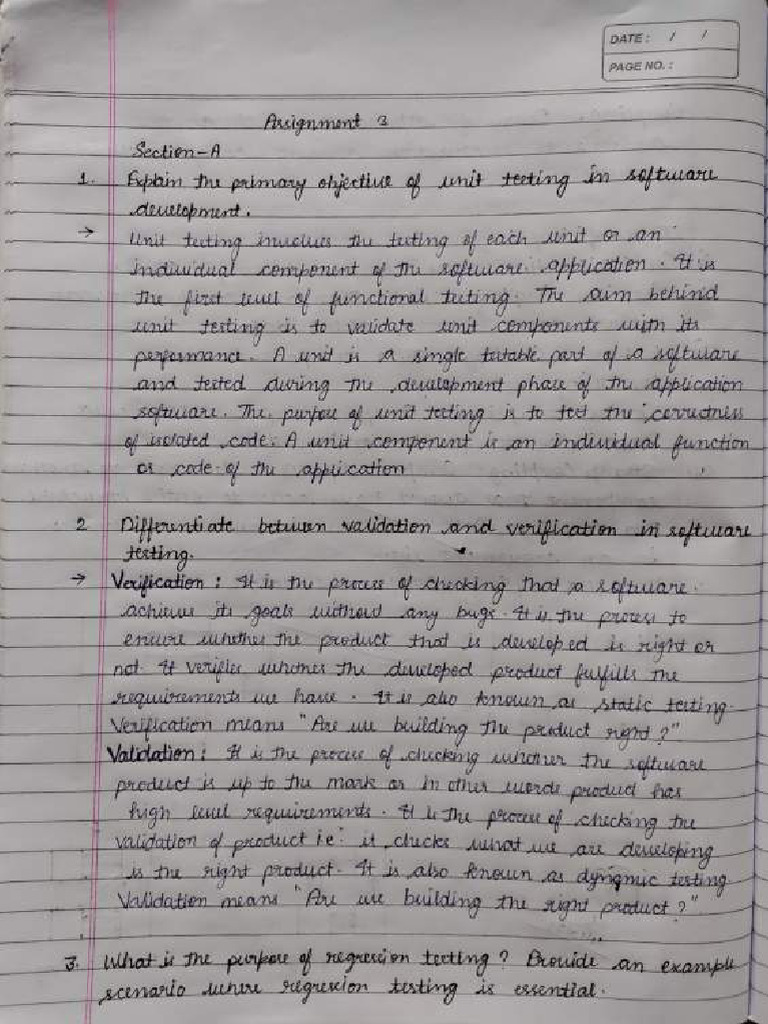 DATE: / /
PAGE NO.:
Assignment 3
Section-A
1. Explain the primary objective of unit testing in software
development.
→ Unit testing involves the testing of each unit or an
individual component of the software application. It is
the first level of functional testing. The aim behind
unit testing is to validate unit components with its
performance. A unit is a single testable part of a software
and tested during the development phase of the application
software. The purpose of unit testing is to test the correctness
of isolated code. A unit component is an individual function
or code of the application
2 Differentiate between validation and verification in software
testing.
→ Verification: It is the process of checking that a software
achieves its goals without any bugs. It is the process to
ensure whether the product that is developed is right or
not. It verifies whether the developed product fulfills the
requirements we have. It is also known as static testing.
Verification means "Are we building the product right?"
Validation: It is the process of checking whether the software
product is up to the mark or in other words product has
high level requirements. It is the process of checking the
validation of product i.e. it checks what we are developing
is the right product. It is also known as dynamic testing.
Validation means "Are we building the right product?".
3. What is the purpose of regression testing? Provide an example
scenario where regression testing is essential.